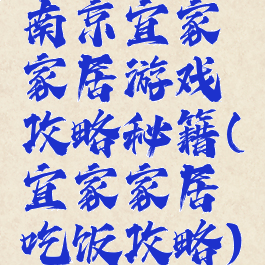 南京宜家
家居游戏
攻略秘籍(
宜家家居
吃饭攻略)